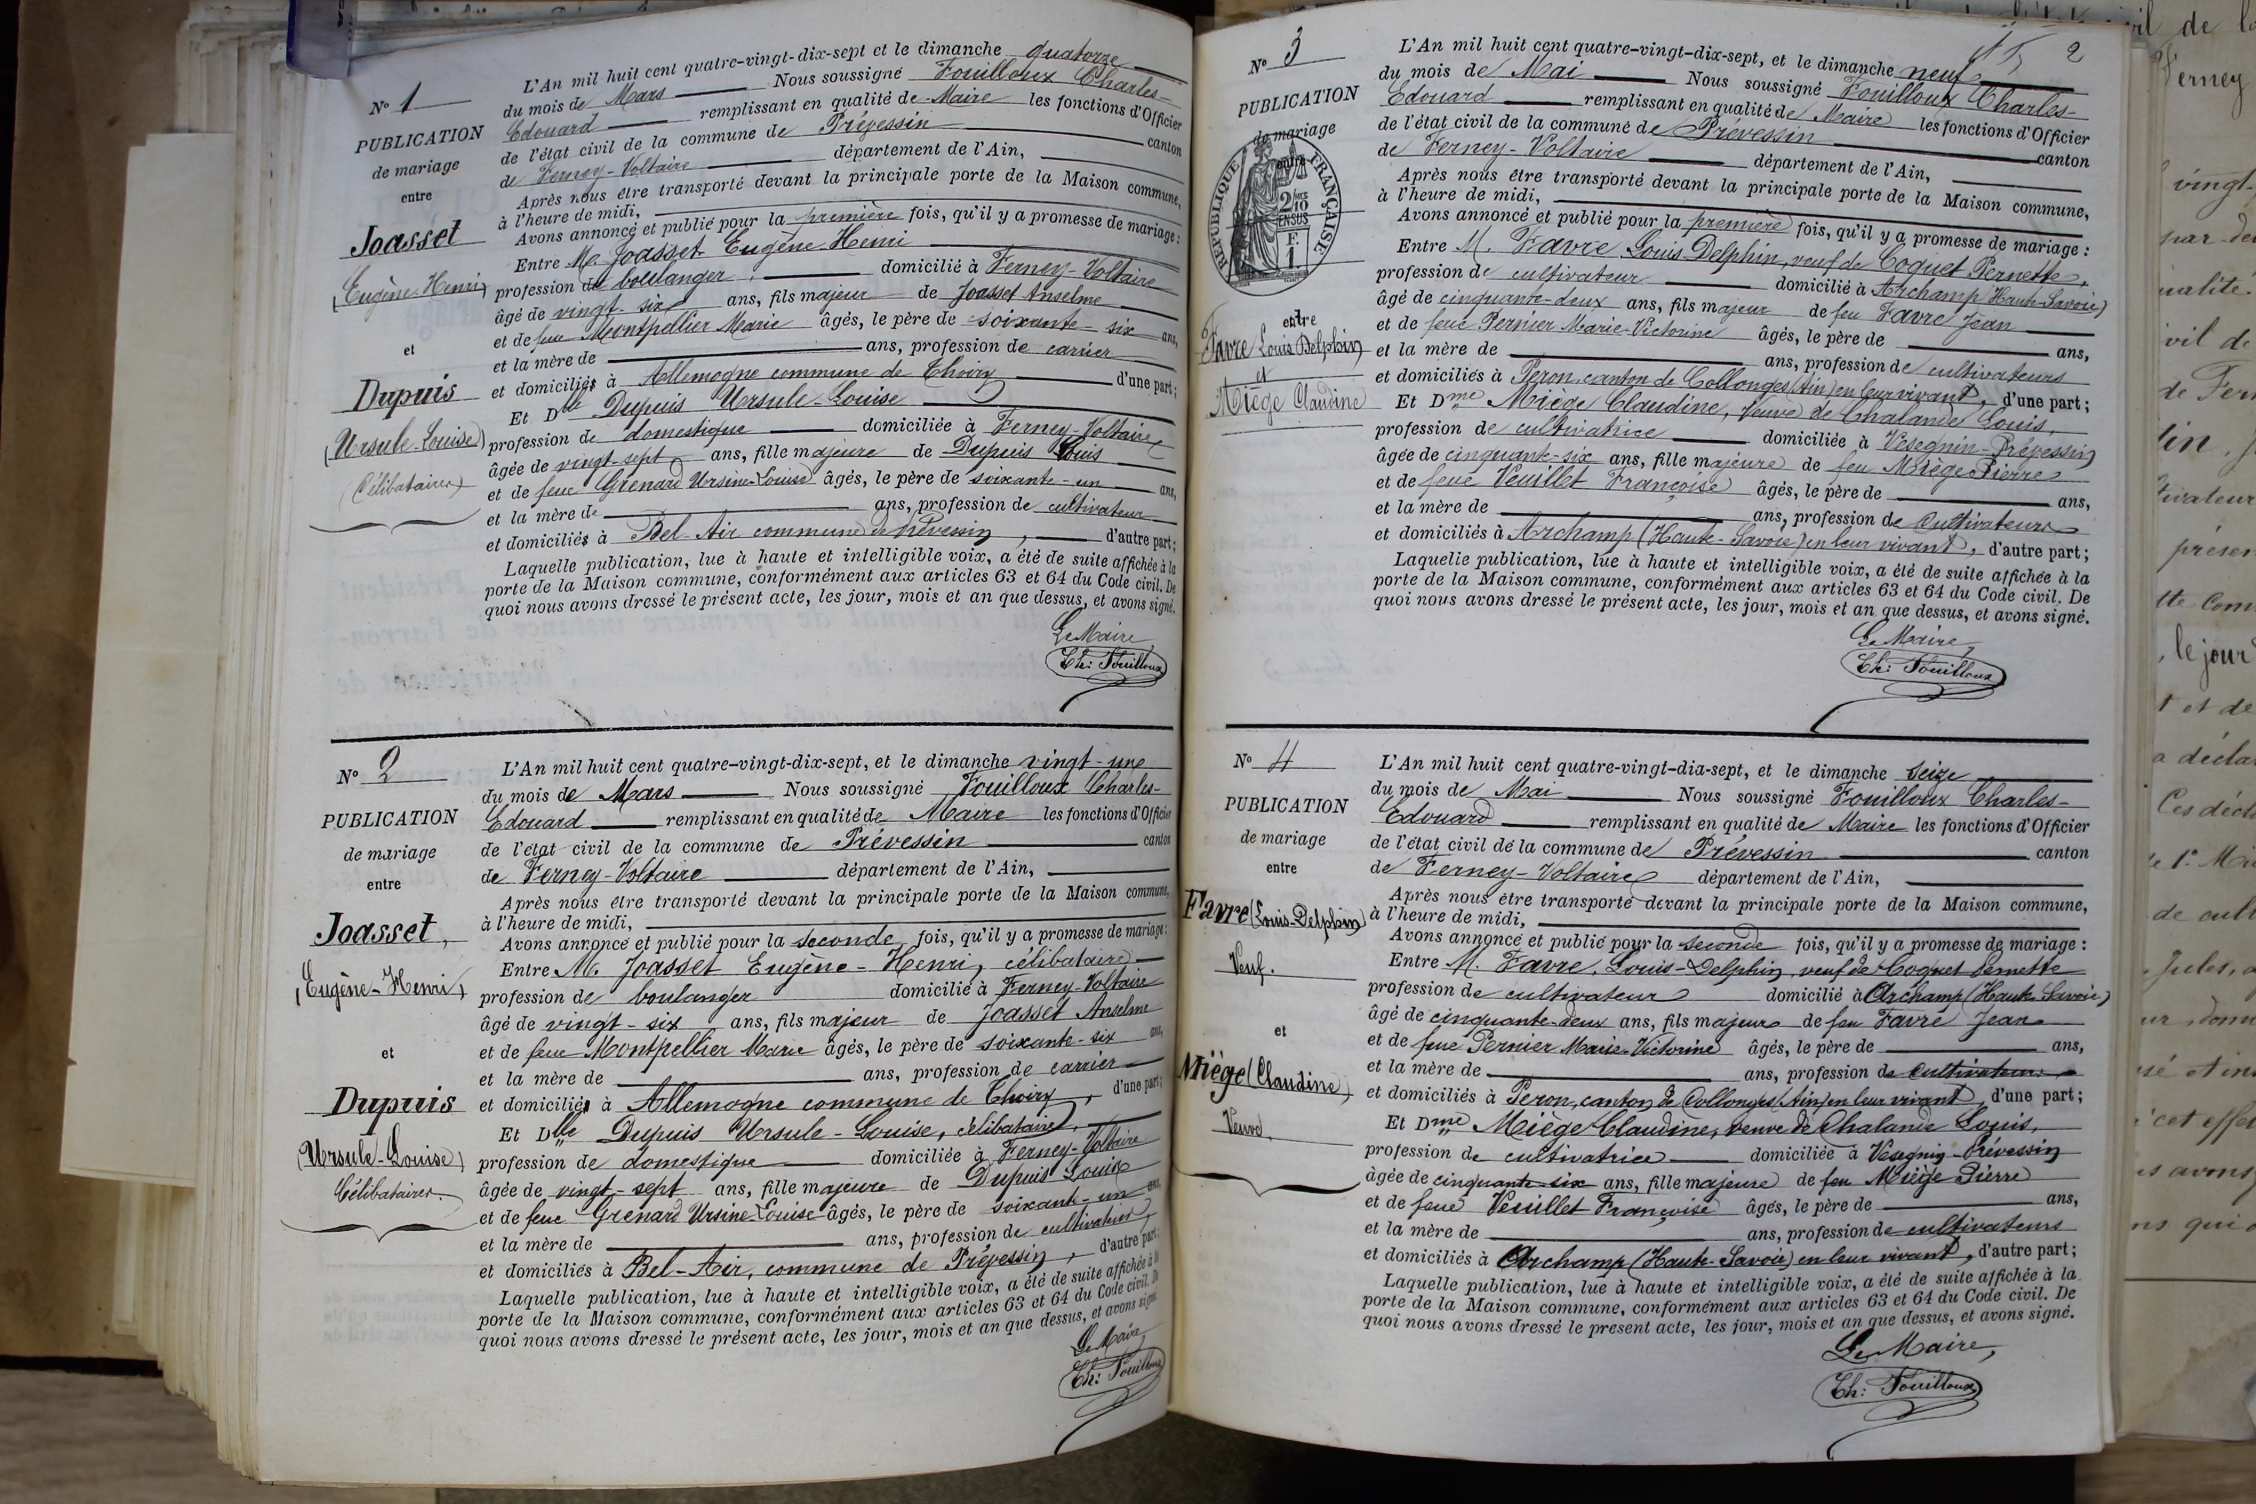 Nº 1
PUBLICATION
de mariage
entre
Joasset
(Eugène-Henri)
et
Dupuis
(Ursule-Louise)
(Célibataires)
L'An mil huit cent quatre-vingt-dix-sept et le dimanche quatorze
du mois de Mars Nous soussigné Fouilloux Charles-
Edouard remplissant en qualité de Maire les fonctions d'Officier
de l'état civil de la commune de Prévessin canton
de Ferney-Voltaire département de l'Ain,
Après nous être transporté devant la principale porte de la Maison commune,
à l'heure de midi,
Avons annoncé et publié pour la première fois, qu'il y a promesse de mariage :
Entre M. Joasset Eugène Henri
profession de boulanger, domicilié à Ferney-Voltaire
âgé de vingt-six ans, fils majeur de Joasset Anselme
et de feue Montpellier Marie âgés, le père de soixante-six ans,
et la mère de ans, profession de carrier
et domiciliés à Allemogne commune de Thoiry d'une part;
Et Dlle Dupuis Ursule-Louise
profession de domestique domiciliée à Ferney-Voltaire
âgée de vingt-sept ans, fille majeure de Dupuis Louis
et de feue Grenard Ursine-Louise âgés, le père de soixante-un ans,
et la mère de ans, profession de cultivateur
et domiciliés à Bel-Air commune de Prévessin, d'autre part;
Laquelle publication, lue à haute et intelligible voix, a été de suite affichée à la
porte de la Maison commune, conformément aux articles 63 et 64 du Code civil. De
quoi nous avons dressé le présent acte, les jour, mois et an que dessus, et avons signé.
Le Maire,
Ch: Fouilloux
Nº 2
PUBLICATION
de mariage
entre
Joasset,
(Eugène-Henri)
et
Dupuis
(Ursule-Louise)
Célibataires.
L'An mil huit cent quatre-vingt-dix-sept, et le dimanche vingt-une
du mois de Mars Nous soussigné Fouilloux Charles-
Edouard remplissant en qualité de Maire les fonctions d'Officier
de l'état civil de la commune de Prévessin canton
de Ferney-Voltaire département de l'Ain,
Après nous être transporté devant la principale porte de la Maison commune,
à l'heure de midi,
Avons annoncé et publié pour la seconde fois, qu'il y a promesse de mariage:
Entre M. Joasset Eugène-Henri, célibataire
profession de boulanger domicilié à Ferney-Voltaire
âgé de vingt-six ans, fils majeur de Joasset Anselme
et de feue Montpellier Marie âgés, le père de soixante-six ans,
et la mère de ans, profession de carrier
et domiciliés à Allemogne commune de Thoiry, d'une part;
Et Dlle Dupuis Ursule-Louise, célibataire,
profession de domestique domiciliée à Ferney-Voltaire
âgée de vingt-sept ans, fille majeure de Dupuis Louis
et de feue Grenard Ursine-Louise âgés, le père de soixante-un ans,
et la mère de ans, profession de cultivateur,
et domiciliés à Bel-Air, commune de Prévessin, d'autre part.
Laquelle publication, lue à haute et intelligible voix, a été de suite affichée à la
porte de la Maison commune, conformément aux articles 63 et 64 du Code civil. De
quoi nous avons dressé le présent acte, les jour, mois et an que dessus, et avons signé.
Le Maire,
Ch: Fouilloux
2
Nº 3
PUBLICATION
de mariage
entre
RÉPUBLIQUE FRANÇAISE
2/10
EN SUS
F.
1
entre
Favre Louis Delphin
et
Miège Claudine
L'An mil huit cent quatre-vingt-dix-sept, et le dimanche neuf
du mois de Mai Nous soussigné Fouilloux Charles-
Edouard remplissant en qualité de Maire les fonctions d'Officier
de l'état civil de la commune de Prévessin canton
de Ferney-Voltaire département de l'Ain,
Après nous être transporté devant la principale porte de la Maison commune,
à l'heure de midi,
Avons annoncé et publié pour la première fois, qu'il y a promesse de mariage :
Entre M. Favre Louis Delphin, veuf de Coquet Pernette,
profession de cultivateur domicilié à Archamp (Haute-Savoie)
âgé de cinquante-deux ans, fils majeur de feu Favre Jean
et de feue Pernier Marie-Victorine âgés, le père de ans,
et la mère de ans, profession de cultivateurs
et domiciliés à Péron, canton de Collonges (Ain) en leur vivant, d'une part;
Et Dme Miège Claudine, veuve de Chalande Louis,
profession de cultivatrice domiciliée à Vésegnin-Prévessin
âgée de cinquante-six ans, fille majeure de feu Miège Pierre
et de feue Veuillet Françoise âgés, le père de ans,
et la mère de ans, profession de Cultivateurs
et domiciliés à Archamp (Haute-Savoie) en leur vivant, d'autre part;
Laquelle publication, lue à haute et intelligible voix, a été de suite affichée à la
porte de la Maison commune, conformément aux articles 63 et 64 du Code civil. De
quoi nous avons dressé le présent acte, les jour, mois et an que dessus, et avons signé.
Le Maire,
Ch: Fouilloux
Nº 4
PUBLICATION
de mariage
entre
Favre (Louis-Delphin)
Veuf.
et
Miège (Claudine)
Veuve.
L'An mil huit cent quatre-vingt-dix-sept, et le dimanche seize
du mois de Mai Nous soussigné Fouilloux Charles-
Edouard remplissant en qualité de Maire les fonctions d'Officier
de l'état civil de la commune de Prévessin canton
de Ferney-Voltaire département de l'Ain,
Après nous être transporté devant la principale porte de la Maison commune,
à l'heure de midi,
Avons annoncé et publié pour la seconde fois, qu'il y a promesse de mariage :
Entre M. Favre, Louis-Delphin, veuf de Coquet Pernette
profession de cultivateur domicilié à Archamp (Haute-Savoie)
âgé de cinquante-deux ans, fils majeur de feu Favre Jean
et de feue Pernier Marie-Victorine âgés, le père de ans,
et la mère de ans, profession de Cultivateurs
et domiciliés à Péron, canton de Collonges (Ain) en leur vivant, d'une part;
Et Dme Miège Claudine, veuve de Chalande Louis,
profession de cultivatrice domiciliée à Vésegnin-Prévessin
âgée de cinquante-six ans, fille majeure de feu Miège Pierre
et de feue Veuillet Françoise âgés, le père de ans,
et la mère de ans, profession de cultivateurs
et domiciliés à Archamp (Haute-Savoie) en leur vivant, d'autre part;
Laquelle publication, lue à haute et intelligible voix, a été de suite affichée à la
porte de la Maison commune, conformément aux articles 63 et 64 du Code civil. De
quoi nous avons dressé le présent acte, les jour, mois et an que dessus, et avons signé.
Le Maire,
Ch: Fouilloux
Ferney
vingt-
par de
le jour
et de
a décla
de cult
Jules,
cet effet